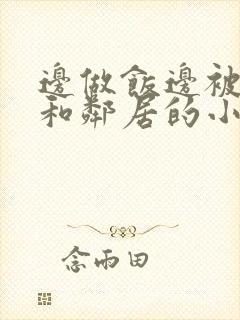 邊做飯邊被
和鄰居的小
念雨田